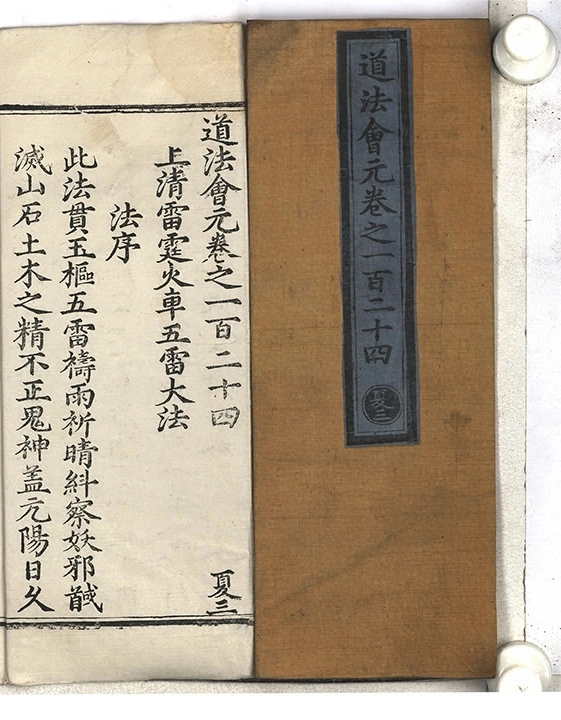 道法會元卷之一百二十四
夏三
道法會元卷之一百二十四 夏三
上清雷霆火車五雷大法
法序
此法貫玉樞五雷禱雨祈晴糾察妖邪馘
滅山石土木之精不正鬼神蓋元陽日久